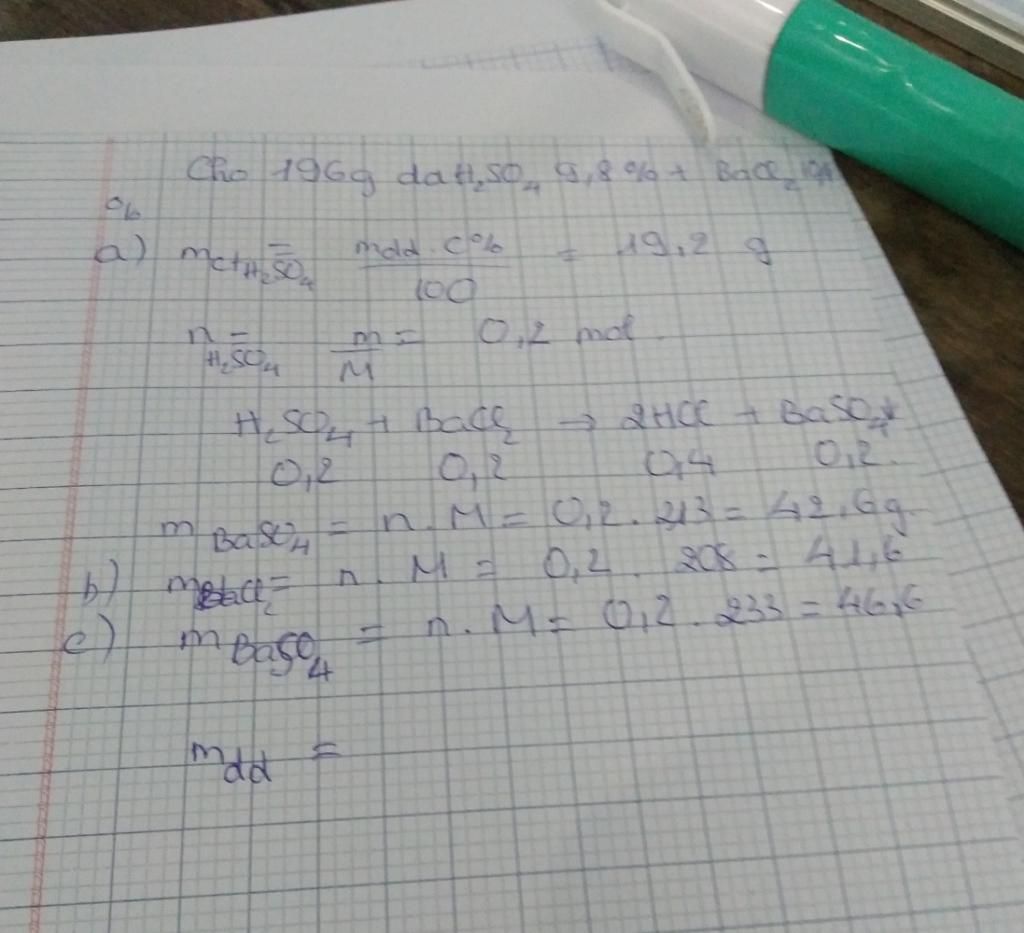 Cho 196g dd H₂SO₄ 9,8% + BaCl₂
%
a) mct H₂SO₄ = mdd.C%/100 = 19,2 g
n H₂SO₄ = m/M = 0,2 mol
H₂SO₄ + BaCl₂ → 2HCl + BaSO₄↓
0,2 0,2 0,4 0,2
m BaSO₄ = n.M = 0,2.213 = 42,6g
b) mBaCl₂ = n.M = 0,2.208 = 41,6
c) m BaSO₄ = n.M = 0,2.233 = 46,6
mdd =